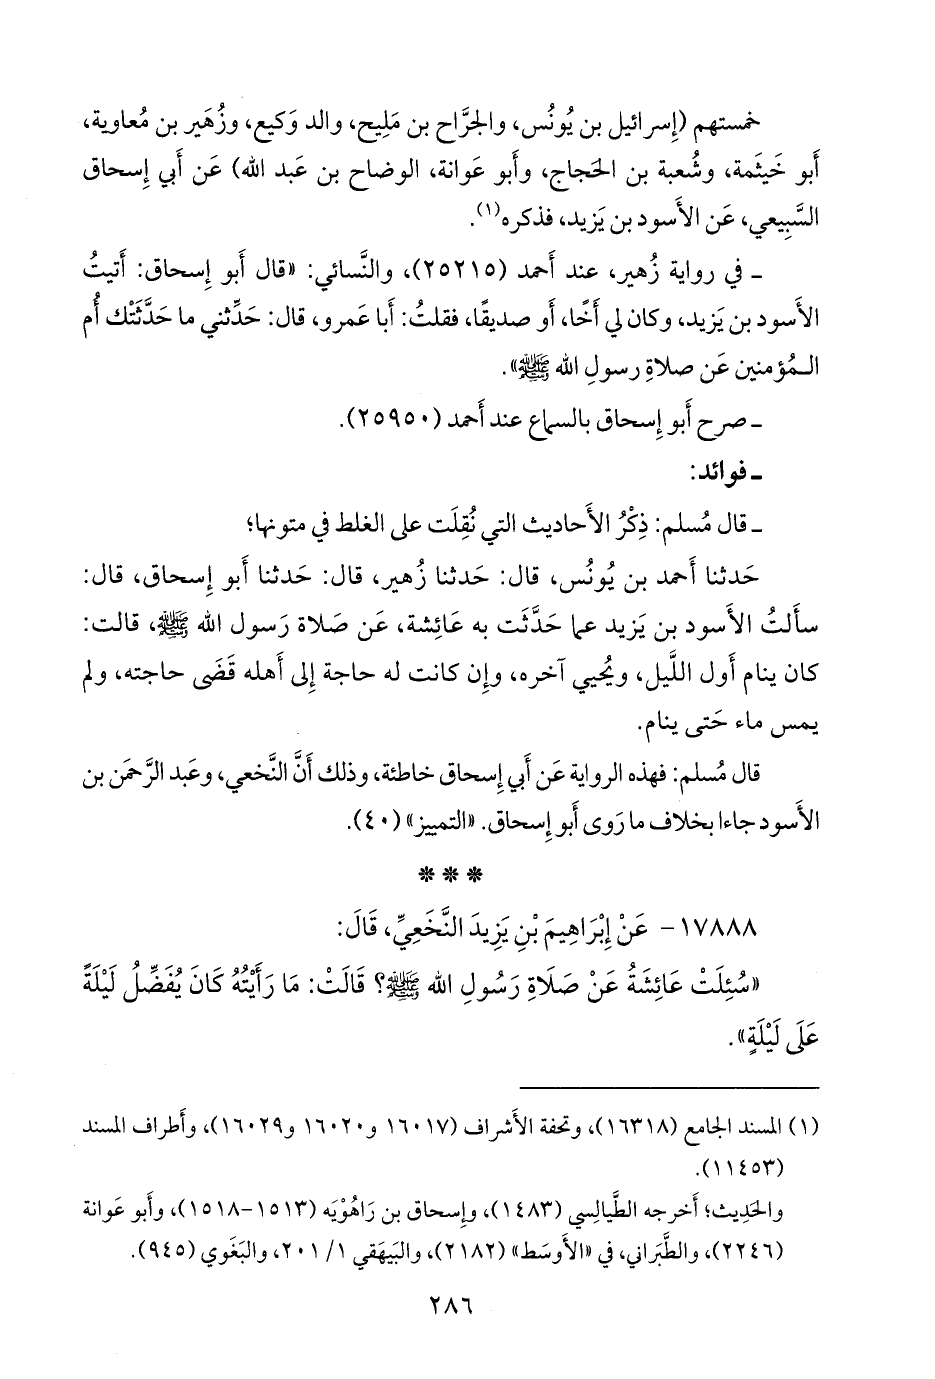 خمستهم (إِسرائيل بن يُونُس، والجرَّاح بن مَلِيح، والد وَكيع، وزُهَير بن مُعاوية،
أَبو خَيثَمة، وشُعبة بن الحَجاج، وأَبو عَوانة، الوضاح بن عَبد الله) عَن أَبي إِسحاق
السَّبِيعي، عَن الأَسود بن يَزيد، فذكره(١).
ـ في رواية زُهير، عند أَحمد (٢٥٢١٥)، والنَّسائي: «قال أَبو إِسحاق: أَتيتُ
الأَسود بن يَزيد، وكان لي أَخًا، أَو صديقًا، فقلتُ: أَبا عَمرو، قال: حَدِّثني ما حَدَّثَتْك أُم
الـمُؤمنين عَن صلاةِ رسولِ الله ﷺ».
ـ صرح أَبو إِسحاق بالسماع عند أَحمد (٢٥٩٥٠).
ـ فوائد:
ـ قال مُسلم: ذِكْرُ الأَحاديث التي نُقِلَت على الغلط في متونها؛
حَدثنا أَحمد بن يُونُس، قال: حَدثنا زُهير، قال: حَدثنا أَبو إِسحاق، قال:
سأَلتُ الأَسود بن يَزيد عما حَدَّثَت به عَائِشة، عَن صَلاة رَسول الله ﷺ، قالت:
كان ينام أَول اللَّيل، ويُحيي آخره، وإِن كانت له حاجة إِلى أَهله قَضَى حاجته، ولم
يمس ماء حَتى ينام.
قال مُسلم: فهذه الرواية عَن أَبي إِسحاق خاطئة، وذلك أَنَّ النَّخعي، وعَبد الرَّحمَن بن
الأَسود جاءا بخلاف ما رَوى أَبو إِسحاق. «التمييز» (٤٠).
* * *
١٧٨٨٨ - عَنْ إِبْرَاهِيمَ بْنِ يَزِيدَ النَّخَعِيِّ، قَالَ:
«سُئِلَتْ عَائِشَةُ عَنْ صَلَاةِ رَسُولِ الله ﷺ؟ قَالَتْ: مَا رَأَيْتُهُ كَانَ يُفَضِّلُ لَيْلَةً
عَلَى لَيْلَةٍ».
(١) المسند الجامع (١٦٣١٨)، وتحفة الأَشراف (١٦٠١٧ و١٦٠٢٠ و١٦٠٢٩)، وأَطراف المسند
(١١٤٥٣).
والحَدِيث؛ أَخرجه الطَّيالِسي (١٤٨٣)، وإِسحاق بن رَاهُوْيَه (١٥١٣-١٥١٨)، وأَبو عَوانة
(٢٢٤٦)، والطَّبَراني، في «الأَوسَط» (٢١٨٢)، والبَيهَقي ١/ ٢٠١، والبَغَوي (٩٤٥).
٢٨٦